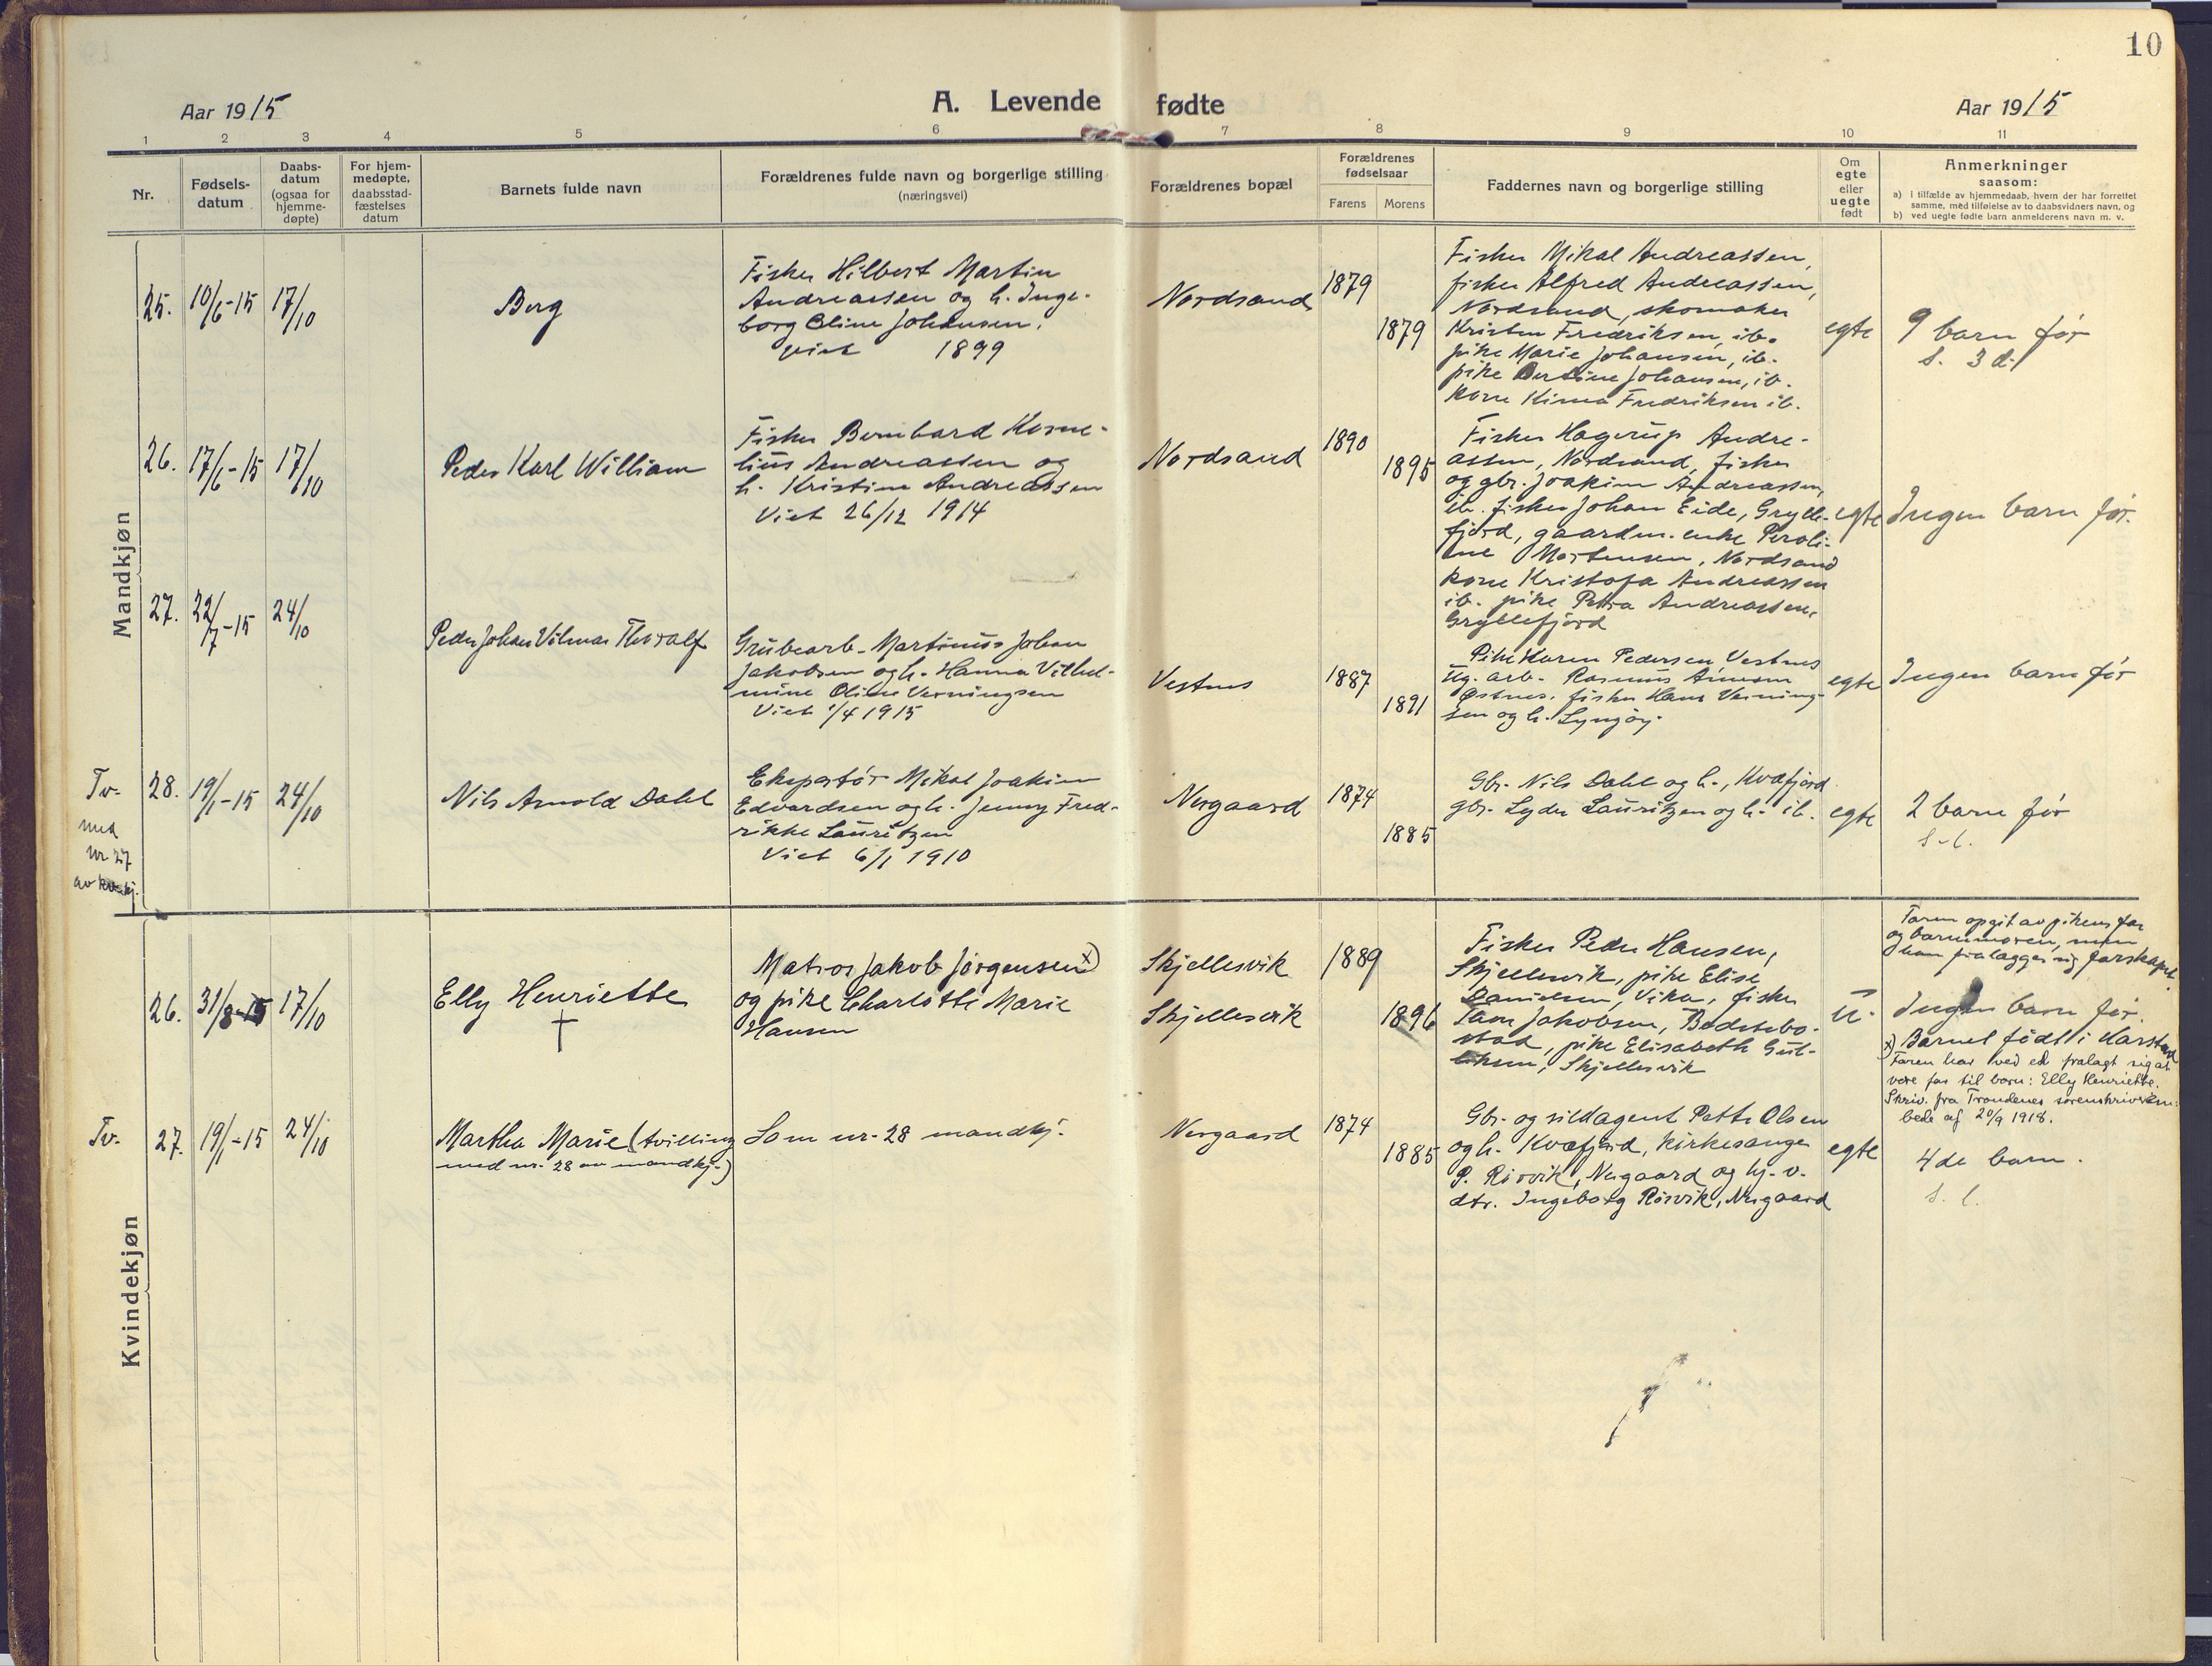 10
Aar 1915
A. Levende fødte
Aar 1915
1 2 3 4 5 6 7 8 9 10 11
Nr.
Fødsels-
datum
Daabs-
datum
(ogsaa for
hjemme-
døpte)
For hjem-
medøpte,
daabsstad-
fæstelses
datum
Barnets fulde navn
Forældrenes fulde navn og borgerlige stilling
(næringsvei)
Forældrenes bopæl
Forældrenes
fødselsaar
Farens Morens
Faddernes navn og borgerlige stilling
Om
egte
eller
uegte
født
Anmerkninger
saasom:
a) i tilfælde av hjemmedaab, hvem der har forrettet
samme, med tilføielse av to daabsvidners navn, og
b) ved uegte fødte barn anmelderens navn m. v.
Mandkjøn
25. 10/6-15 17/10
Berg
Fisker Hilbert Martin
Andreassen og h. Inge-
borg Oline Johansen.
viet 1899
Nordsand
1879
1879
Fisker Mikal Andreassen,
fisker Alfred Andreassen,
Nordsand, skomaker
Kristen Fredriksen, ib.
pike Marie Johansen, ib.
pike Bertine Johansen, ib.
kone Kima Fredriksen ib.
egte
9 barn før
s. 3 d.
26. 17/6-15 17/10
Peder Karl William
Fisker Bernhard Korne-
lius Andreassen og
h. Kristine Andreassen
Viet 26/12 1914
Nordsand
1890
1895
Fisker Hagerup Andre-
assen, Nordsand, fisker
og gbr. Joakim Andreassen,
ib. fisker Johan Eide, Grylle-
fjord, gaardm. enke Peroli-
ne Mortensen, Nordsand
kone Kristofa Andreassen
ib. pike Petra Andreassen,
Gryllefjord
egte
Ingen barn før.
27. 22/7-15 24/10
Peder Johan Vilmar Thoralf
Grubearb. Martinus Johan
Jakobsen og h. Hanna Vilhel-
mine Oline Verningsen
Viet 1/4 1915
Vestnes
1887
1891
Pike Karen Pedersen Vestnes
Ug. arb. Rasmus
Østnes, fisker Hans Verning-
sen og h. Lyngøy.
egte
Ingen barn før
Tv.
med
nr 27
av kvkj.
28. 19/1-15 24/10
Nils Arnold Dahl
Ekspeditør Mikal Joakim
Edvardsen og h. Jenny Fred-
rikke Lauritzen
Viet 6/1 1910
Nergaard
1874
1885
Gbr. Nils Dahl og h., Kvæfjord
gbr. Lyder Lauritzen og h. ib.
egte
2 barn før
s. l.
Kvindekjøn
26. 31/8-15 17/10
Elly Henriette
†
Matros Jakob Jørgensen x)
og pike Charlotte Marie
Hansen
Skjellesvik
Skjellesvik
1889
1896
Fisker Peder Hansen,
Skjellesvik, pike Elise
Danielsen, Vika, fisker
Jakobsen, Bødstebo-
stad, pike Elisabeth Gul-
Skjellesvik
u.
Faren opgit av pikens far
og barnemoren, men
han fralægger sig farskapet.
Ingen barn før.
x) Barnet født i Harstad
Faren har ved ed fralagt sig at
være far til barn: Elly Henriette.
Skriv. fra Trondenes sorenskriverem-
bede af 20/9 1918.
Tv.
27. 19/1-15 24/10
Martha Marie (tvilling
med nr. 28 av mandkj.)
Som nr. 28 mandkj.
Nergaard
1874
1885
Gbr. og sildagent Petter Olsen
og h. Kvæfjord, Kirkesanger
P. Rørvik, Nergaard og hj. v.
dtr. Ingeborg Rørvik, Nergaard
egte
4de barn.
s. l.